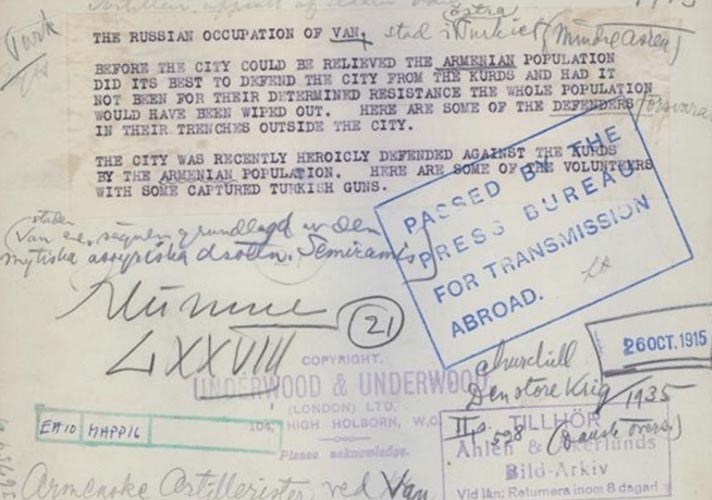 THE RUSSIAN OCCUPATION OF VAN, stad i Turkiet (Mindre Asien)
BEFORE THE CITY COULD BE RELIEVED THE ARMENIAN POPULATION
DID ITS BEST TO DEFEND THE CITY FROM THE KURDS AND HAD IT
NOT BEEN FOR THEIR DETERMINED RESISTANCE THE WHOLE POPULATION
WOULD HAVE BEEN WIPED OUT. HERE ARE SOME OF THE DEFENDERS
IN THEIR TRENCHES OUTSIDE THE CITY.
THE CITY WAS RECENTLY HEROICLY DEFENDED AGAINST THE KURDS
BY THE ARMENIAN POPULATION. HERE ARE SOME OF THE VOLUNTEERS
WITH SOME CAPTURED TURKISH GUNS.
PASSED BY THE
PRESS BUREAU
FOR TRANSMISSION
ABROAD.
staden
Van
mytiska assyriska Semiramis
21
LXXVIII
26 OCT. 1915
COPYRIGHT.
UNDERWOOD & UNDERWOOD
(LONDON) LTD.
104, HIGH HOLBORN, W.C.
Please acknowledge.
EA10 MAPP16
Churchill
Den store Krig 1935
II s. 528 (Dansk övers)
TILLHÖR
Ahlén & Åkerlunds
Bild-Arkiv
Vid lån: Returnera inom 8 dagar
Armenske Artillerister ved Van